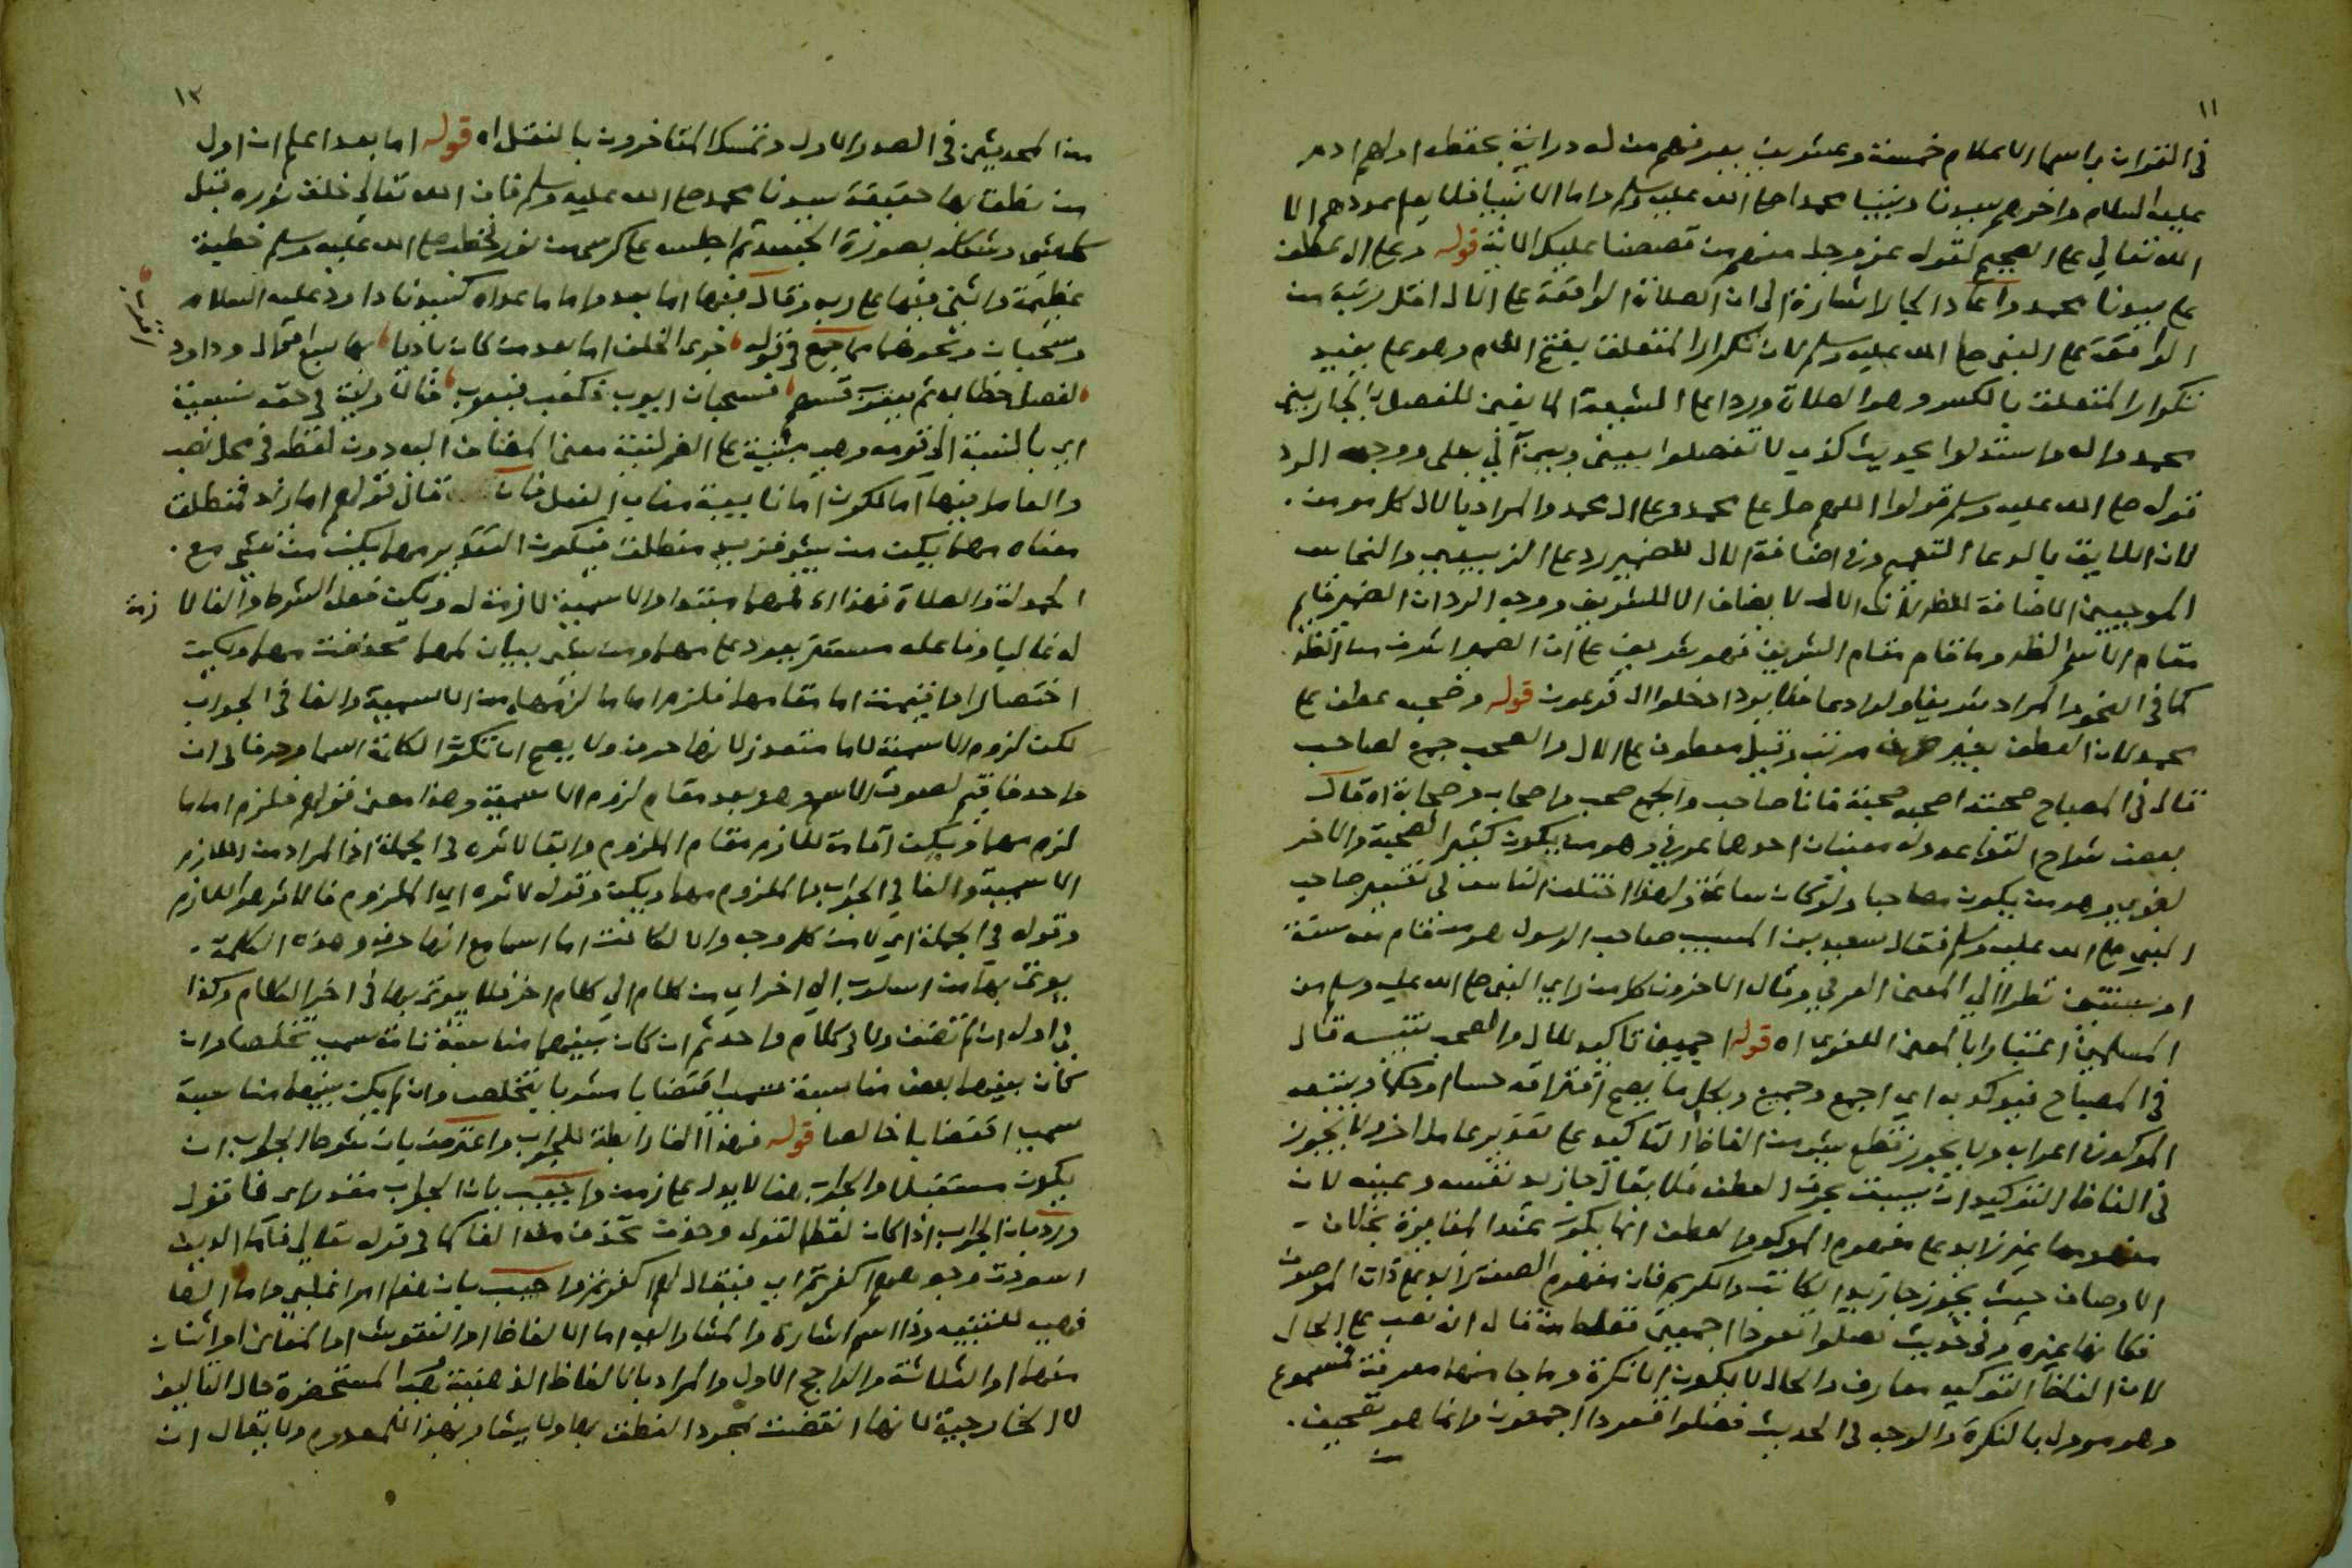 ١١
في القران باسما الاعلام خمسة وعشرين بعد فهم من له دراية بحفظه اولهم ادم
عليه السلام واخرهم سيدنا ونبينا محمدا صلى الله عليه وسلم واما الانبيا فلا يعلم عددهم الا
الله تعالى على الصحيح لقوله عز وجل منهم من قصصنا عليك الاية قوله وعلى ال عطف
على سيدنا محمد واعاد الجار اشارة الى ان الصلاة الواقعة على الال اقل رتبة من
الواقعة على النبي صلى الله عليه وسلم لان تكرار المتعلق بفتح اللام وهو على يفيد
تكرار المتعلق بالكسر وهو الصلاة وردا على الشيعة المانعين للفصل بالجار بين
محمد واله واستدلوا بحديث كذب لا تفصلوا بيني وبين آلي بعلى ووجه الرد
قوله صلى الله عليه وسلم قولوا اللهم صل على محمد وعلى ال محمد والمراد بالال كل مومن
لان اللايق بالدعا التعميم وفي اضافة الال للضمير رد على الزبيدي والنحاس
الموجبين الاضافة للظاهر لان الال لا يضاف الا للشريف ووجه الرد ان الضمير قايم
مقام الاسم الظاهر وما قام مقام الشريف فهو شريف على ان الضمير اشرف من الظاهر
كما في النحو والمراد شريف ولو ادعا فلا يرد ادخلوا ال فرعون قوله وصحبه عطف على
محمد لان العطف بغير حرف مرتب وقيل معطوف على الال والصحب جمع لصاحب
قال في المصباح صحبته اصحبه صحبة فانا صاحب والجمع صحب واصحاب وصحابة اه قال
بعض شراح القواعد وله معنيان احدهما عرفي وهو من يكون كثير الصحبة والاخر
لغوي وهو من يكون مصاحبا ولو كان ساعة ولهذا اختلف الناس في تفسير صاحب
النبي صلى الله عليه وسلم فقال سعيد بن المسيب صاحب الرسول هو من قام معه سنة
او سنتين نظرا الي المعنى العرفي وقال الاخرون كل من راي النبي صلى الله عليه وسلم من
المسلمين اعتبارا بالمعنى اللغوي اه قوله اجمعين تاكيد للال والصحب تتبيه قال
في المصباح فيوكد به اي اجمع وجميع وبكل ما يصح افتراقه حسا او حكما ويتبعه
الموكد في اعرابه ولا يجوز قطع شي من الفاظ التاكيد على تقدير عامل اخر ولا يجوز
في الفاظ التوكيد ان ينسق بحرف العطف فلا يقال جا زيد نفسه وعينه لان
مفهومها غير زايد على مفهوم الموكد والعطف انما يكون عند المغايرة بخلاف
الاوصاف حيث يجوز جا زيد الكاتب والكريم فان مفهوم الصفة زايد على ذات الموصوف
فكانها غيره وفي حديث فصلوا قعودا اجمعين فغلط من قال انه نصب على الحال
لان الفاظ التوكيد معارف والحال لا يكون الا نكرة وما جا منها معرفة فمسموع
وهو مودل بالنكرة والوجه في الحديث فصلوا قعودا اجمعون وانما هو تصحيف
١٢
من المحدثين في الصدر الاول وتمسك المتاخرون بالنقل اه قوله اما بعد اعلم ان اول
من نطق بها حقيقة سيدنا محمد صلى الله عليه وسلم فان الله تعالى خلق نوره قبل
كل شي وشكله بصورة الجسد ثم اجلسه على كرسي من نور فخطب صلى الله عليه وسلم خطبة
عظيمة واثنى فيها على ربه وقال فيها اما بعد واما ما عداه كسيدنا داود عليه السلام
وسحبان ونحوهما مما جمع في قوله جرى الخلف اما بعد من كان باديا بها سبع اقوال وداود
لفصل خطابه ثم يعقوب قسهم فسحبان ايوب فكعب فيعرب قال وليه في حقه نسبية
اي بالنسبة الى قومه وهي مبنية على الضم لنية معنى المضاف اليه دون لفظه في محل نصب
والعامل فيها اما لكون اما نايبة مناب الفعل فان قال قولهم اما زيد فمنطلق
معناه مهما يكن من شي فزيد منطلق فيكون التقدير مهما يكن من شي مع
الحمدلة والصلاة فهذا اه فمهما مبتدا والاسمية لازمة له ويكن فعل الشرط والفا لا زمة
له غاليا وفاعله مستتر يعود على مهما ومن شي بيان لمهما فحذفت مهما ويكن
اختصارا واقيمت اما مقامهما فلزم اما ما لزمهما من الاسمية والفا في الجواب
لكن لزوم الاسمية لاما متعذر لانها حرف ولا يصح ان تكون الكلمة اسما وحرفا في ان
واحد فاقيم لصوق الاسم وهو بعد مقام لزوم الاسمية وهذا معنى قولهم فلزم اما ما
لزم مهما ويكن اقامة للازم مقام الملزوم وابقا لاثره في الجملة اذ المراد من اللازم
الاسمية والفا في الجواب والملزوم مهما ويكن وقوله لاثره اي الملزوم فالاثر هو اللازم
وقوله في الجملة اي لا من كل وجه والا لكانت اما اسما مع انها حرف وهذه الكلمة
يوتى بها من اسلوب الي اخر اي من كلام الي كلام اخر فلا يوتى بها في اخر الكلام وكذا
في اوله ان لم تضف ولا في كلام واحد ثم ان كان بينهما مناسبة تامة سمي تخلصا وان
كان بينهما بعض مناسبة سمي اقتضابا مشوبا بتخلص وان لم يكن بينهما مناسبة
سمي اقتضابا خالصا قوله فهذا الفا رابطة للجواب واعترض بان شرط الجواب ان
يكون مستقبلا والجواب هنا لا يدل على زمن واجيب بان الجواب مقدر اي فاقول
ورد بان الجواب اذا كان لفظ القول وحذف تحذف معه الفا كما في قوله تعالى فاما الذين
اسودت وجوههم اكفرتم اي فيقال لهم اكفرتم واجيب بان هذا امر اغلبي واما الها
فهي للتنبيه وذا اسم اشارة والمشار اليه اما الالفاظ او النقوش او المعاني او اثنان
منها او الثلاثة والراجح الاول والمراد بانا لفاظ الذهنية المستحضرة حال التاليف
لا الخارجية لانها انقضت بمجرد النطق بها ولا يشار بهذا للمعدوم ولا يقال ان